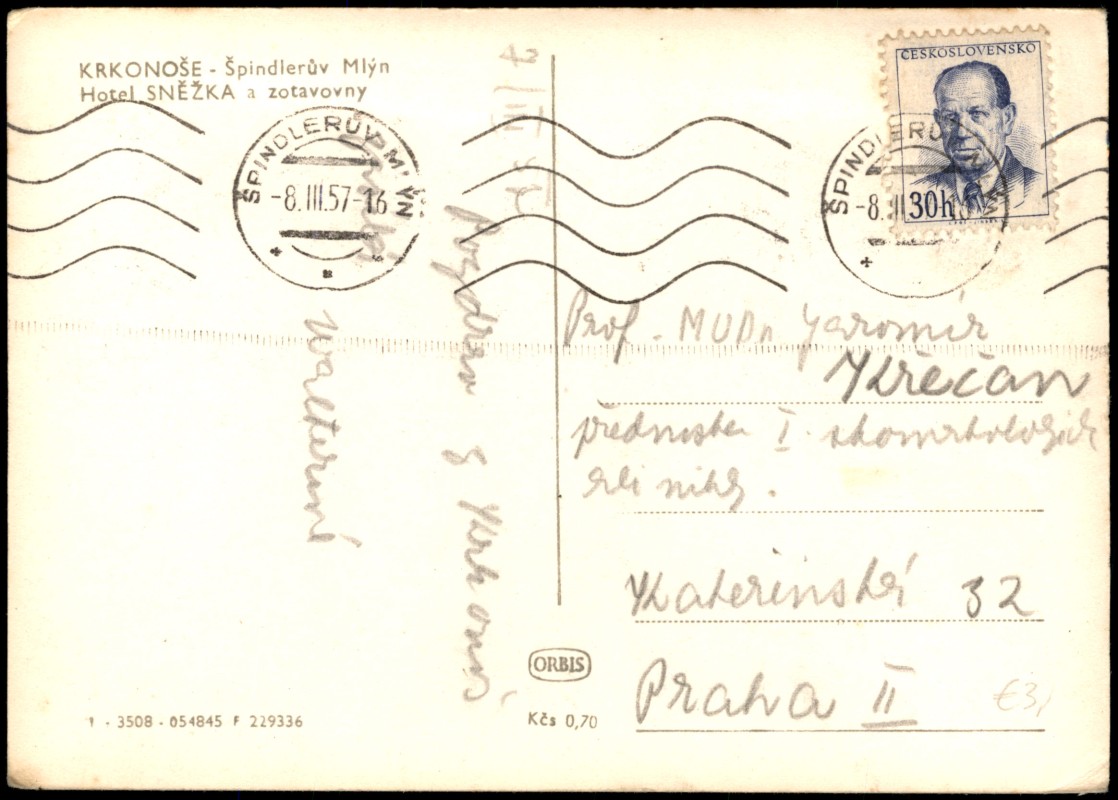 KRKONOŠE - Špindlerův Mlýn
Hotel SNĚŽKA a zotavovny
ŠPINDLERŮV MLÝN
-8.III.57-16
7/III 57
Pozdrav z Krkonoš
Walterové
ČESKOSLOVENSKO
30h
ŠPINDLERŮV
-8.III
Prof. MUDr Jaromír
Křečan
přednosta I. stomatologick
kliniky.
Kateřinská 32
Praha II
€3,
ORBIS
Kčs 0,70
1 - 3508 - 054845 F 229336